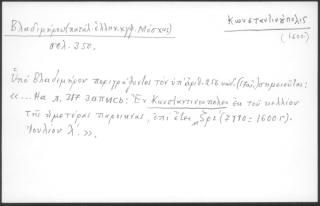 Βλαδιμήρου (κατάλ. ἑλλην. χφφ. Μόσχας)
σελ. 350.
Κωνσταντινόπολις
(1600)
Ὑπὸ Βλαδιμήρου περιγράφοντος τὸν ὑπ' ἀριθ. 256 κώδ. (ιϛ' αἰ.) σημειοῦται:
«... На л. 317 запись: Ἐν Κωνσταντινουπόλει ἐκ τοῦ κελλίου
τῆς ἡμετέρας παροικίας, ἐπὶ ἔτους ͵ζρη' (7110 = 1600 г.
Ἰουλίου λ'.».